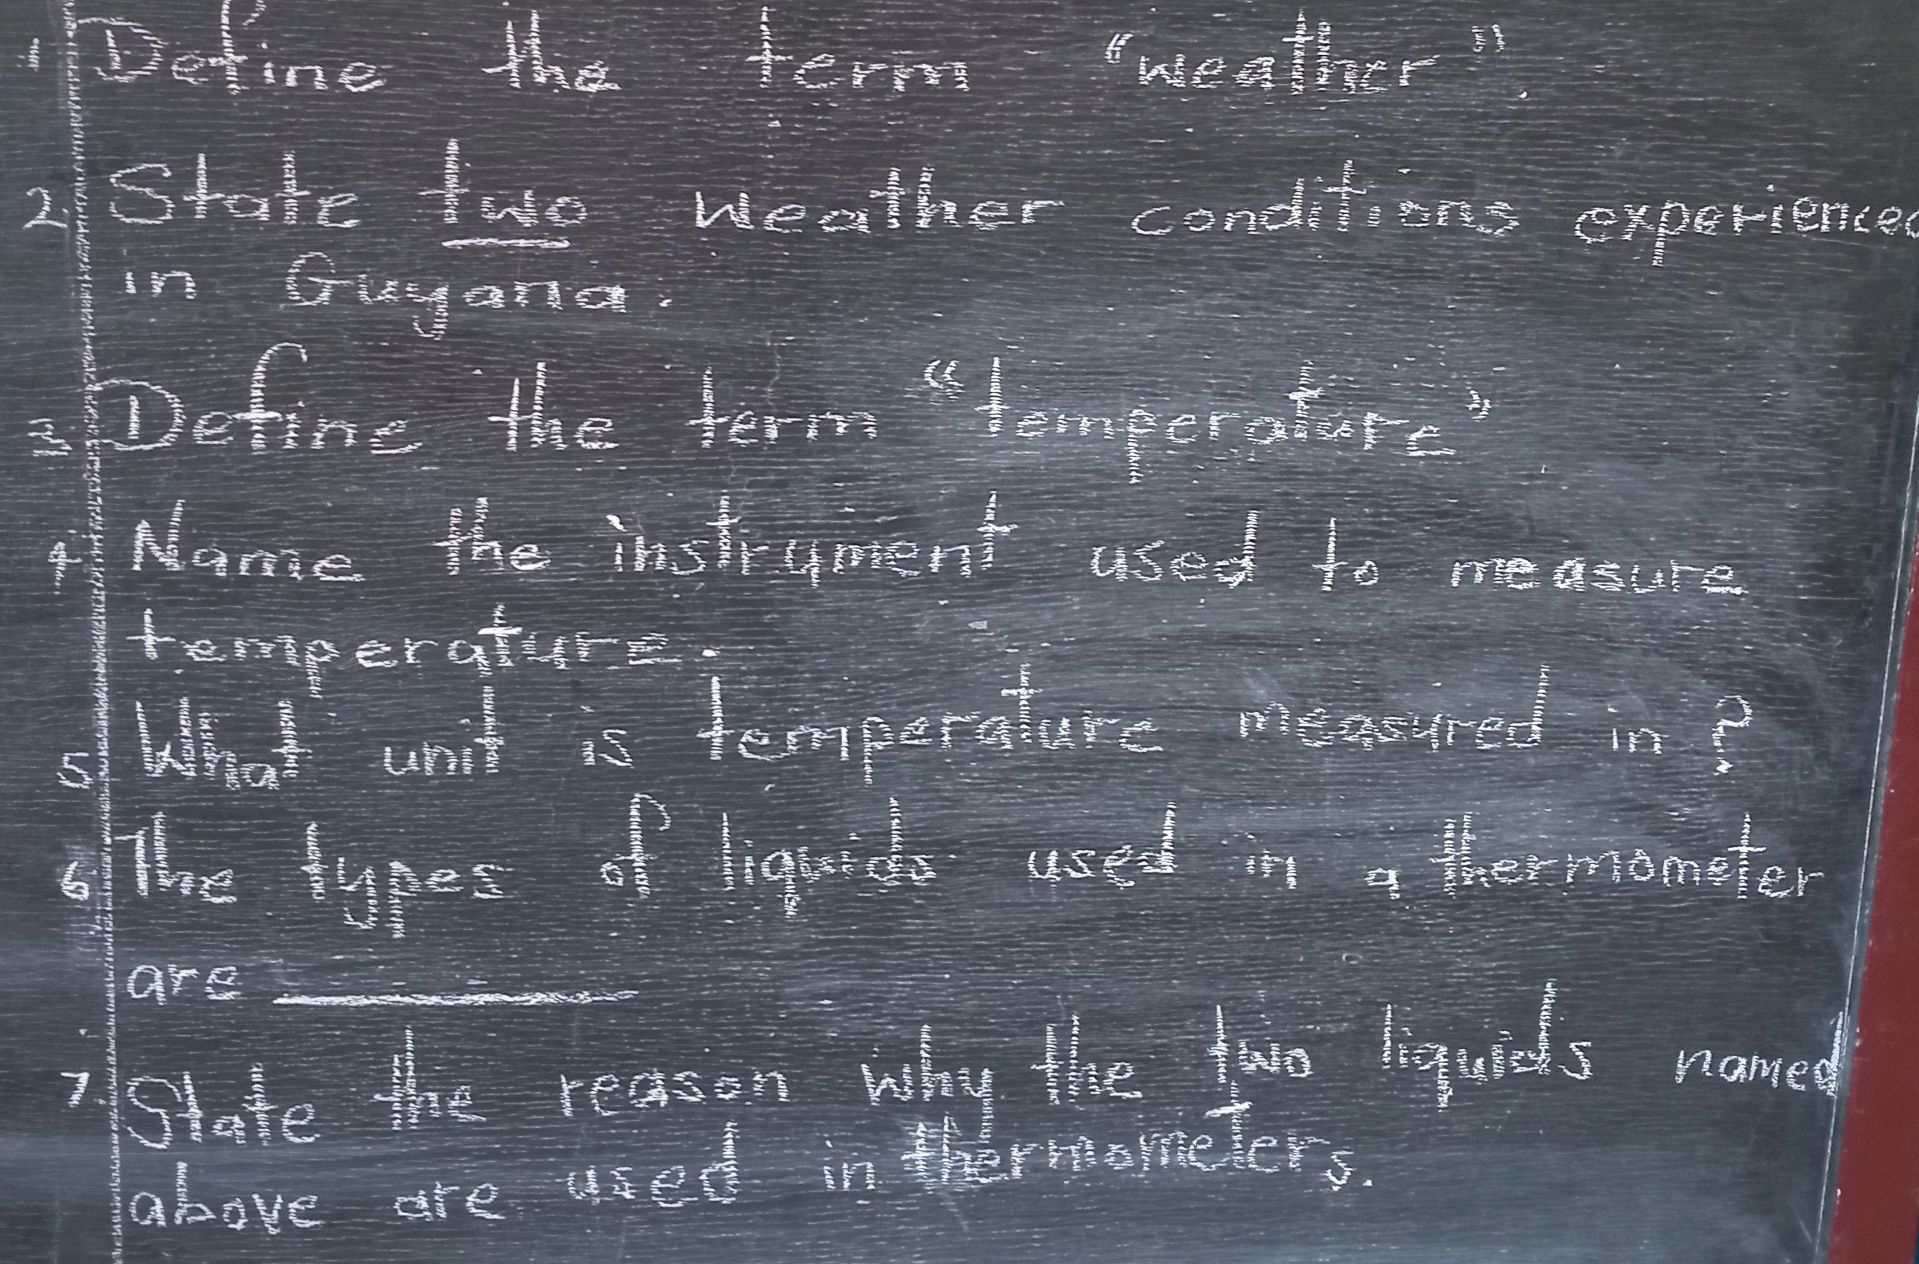 1. Define the term "weather".
2. State two weather conditions experienced
in Guyana.
3. Define the term "temperature"
4. Name the instrument used to measure
temperature.
5. What unit is temperature measured in?
6. The types of liquids used in a thermometer
are ____________
7. State the reason why the two liquids named
above are used in thermometers.